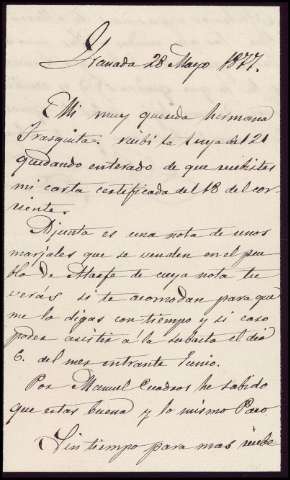 Granada 28 Mayo 1877.
Mi muy querida hermana
Frasquita: recibi la tuya del 21
quedando enterado de que recibistes
mi carta certificada del 18 del cor-
riente.
Ajunta es una nota de unos
marjales que se venden en el pue
blo de Atarfe de cuya nota tu
verás si te acomodan para que
me lo digas con tiempo y si caso
poder asistir á la subasta el dia
6. del mes entrante Junio.
Por Manuel Cuadros he sabido
que estas buena y lo mismo Paco
Sin tiempo para mas recibe